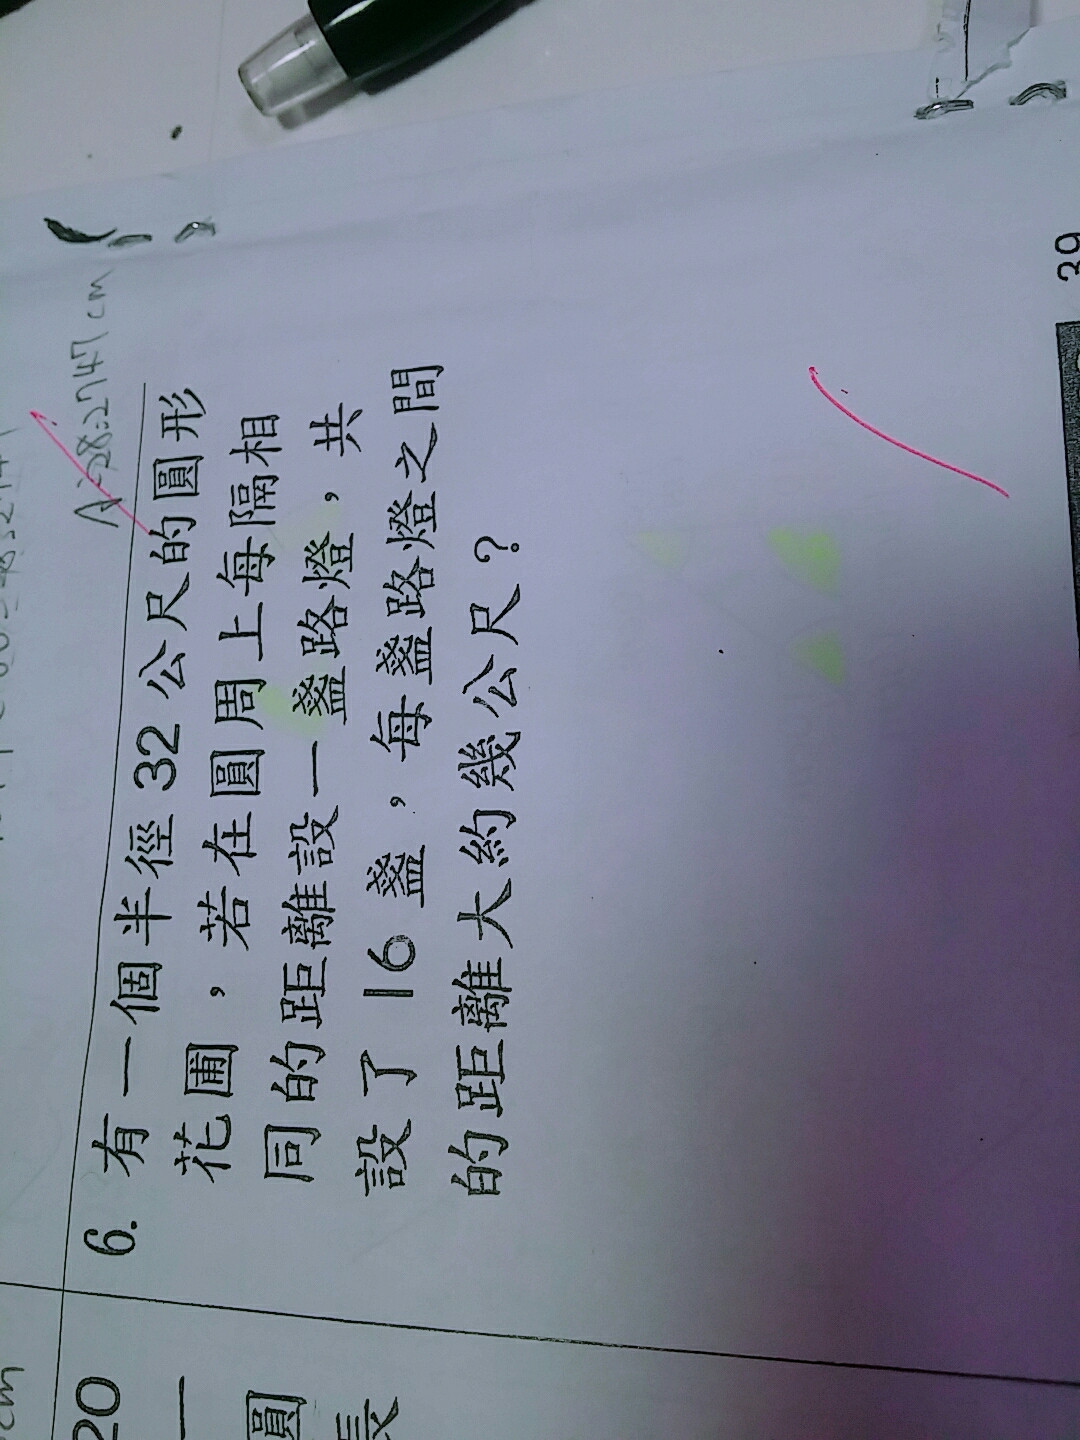 A:282.747 cm
6. 有一個半徑 32 公尺的圓形
花圃，若在圓周上每隔相
同的距離設一盞路燈，共
設了 16 盞，每盞路燈之間
的距離大約幾公尺？
39
cm
20
一
圓
長